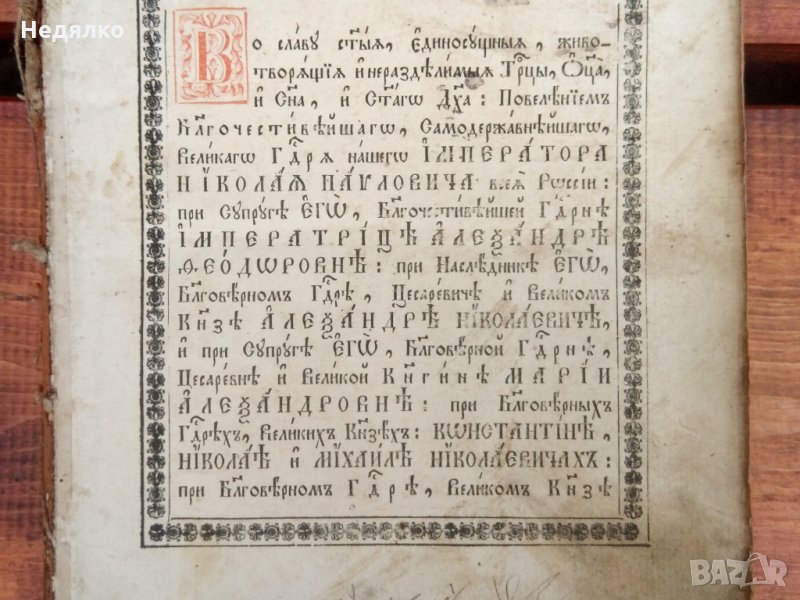 Недялко
Во славу ст҃ыѧ, є҆диносꙋщныѧ, живо-
творѧщїѧ и҆ нераздѣли́мыѧ Трⷪ҇цы, Ѻ҆ц҃а̀,
и҆ Сн҃а, и҆ Ст҃а́гѡ Дх҃а: Повелѣ́нїемъ
Бл҃гочести́вѣйшагѡ, Самодержа́внѣйшагѡ,
Вели́кагѡ Гдⷭ҇рѧ на́шегѡ І҆МПЕРА́ТОРА
НІКОЛА́Ѧ ПА́ѴЛОВИЧА всеѧ̀ Рѡссі́и:
при Сꙋпрꙋ́гѣ Є҆гѡ̀, Бл҃гочести́вѣйшей Гдⷭ҇рнѣ
І҆МПЕРАТРІ́ЦѢ А҆ЛЕѮА́НДРѢ
Ѳ҆ЕО́ДѠРОВНѢ: при Наслѣ́дникѣ Є҆гѡ̀,
Бл҃говѣ́рномъ Гдⷭ҇рѣ, Цесаре́вичѣ и҆ Вели́комъ
Кн҃зѣ А҆ЛЕѮА́НДРѢ НІКОЛА́ЕВИЧѢ,
и҆ при Сꙋпрꙋ́гѣ Є҆гѡ̀, Бл҃говѣ́рной Гдⷭ҇рнѣ,
Цесаре́внѣ и҆ Вели́кой Кн҃ги́нѣ МАРІ́И
А҆ЛЕѮА́НДРОВНѢ: при Бл҃говѣ́рныхъ
Гдⷭ҇рѣхъ, Вели́кихъ Кн҃зѣхъ: КѠНСТАНТІ́НѢ,
НІКОЛА́Ѣ и҆ МІХАИ́ЛѢ НІКОЛА́ЕВИЧАХЪ:
при Бл҃говѣ́рномъ Гдⷭ҇рѣ, Вели́комъ Кн҃зѣ
BAZAR